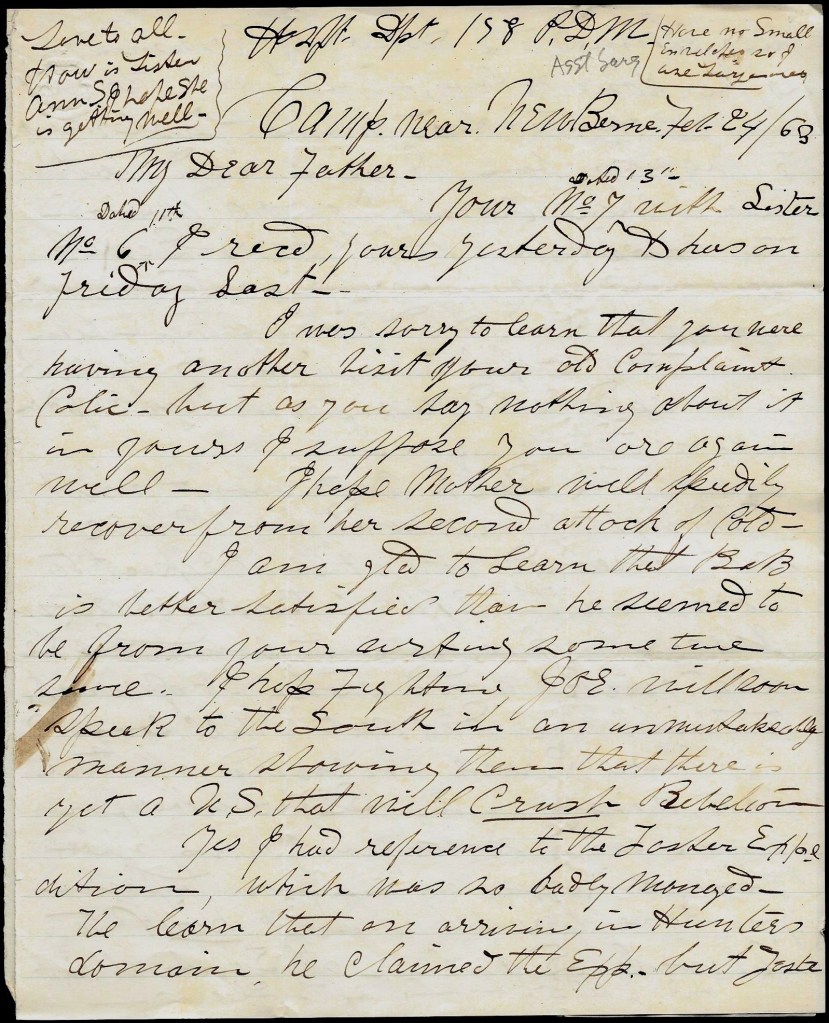 Love to all.
How is Sister
Ann S. I hope she
is getting well -
Hospt. Dpt. 158 P.D.M.
Asst Surg
Have no Small
Envelopes so I
use large ones
Camp. near. New Berne Feb. 24/63
My Dear Father -
Dated 13th
Your No 7 with Sister
Dated 11th
No 6, I recd, yours yesterday & hers on
Friday Last -
I was sorry to learn that you were
having another visit of your old Complaint.
Colic - but as you say nothing about it
in yours I suppose you are again
well - I hope Mother will speedily
recover from her second attack of Cold -
I am glad to Learn that BaB
is better satisfied than he seemed to
be from your writing some time
since. I hope Fighting JoE. will soon
speak to the South in an unmistakably
manner showing them that there is
yet a U.S. that will Crush Rebelion
Yes I had reference to the Foster Expe
dition, which was so badly manged -
We learn that on arriving in Hunters
domain, he claimed the Exp. - but Foster